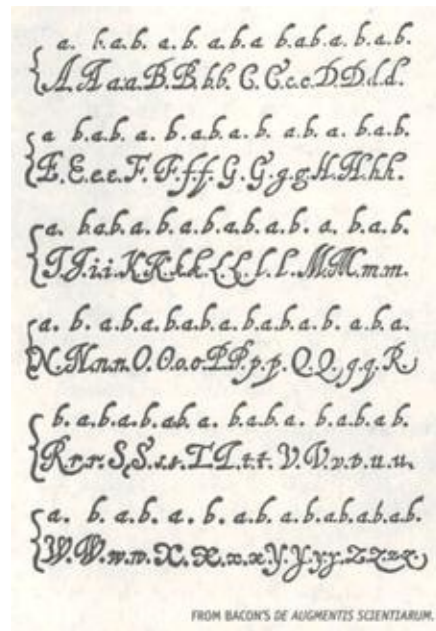 a. b.a.b. a.b. a.b.a b.a.b.a. b.a.b.
A.A.a.a.B.B.b.b. C.C.c.c.D.D.d.d.
a b.a.b. a. b. a.b.a.b. a.b.a. b.a.b.
E.E.e.e.F.F.f.f. G.G.g.g.H.H.h.h.
a. b.a.b.a b.a.b.a.b.a.b. a. b.a.b.
I.I.i.i.K.K.k.k.L.L.l.l.M.M.m.m.
a. b. a.b.a.b.a.b.a.b.a.b.a.b. a.b.a.
N.N.n.n.O.O.o.o.P.P.p.p.Q.Q.q.q.R.
b. a.b.a.b.a.b. a. b.a.b.a. b.a.b.a.b.
R.r.r.S.S.s.s.T.T.t.t.V.V.v.v.u.u.
a. b. a.b. a. b. a.b. a.b.a.b.a.b.a.b.
W.W.w.w.X.X.x.x.Y.Y.y.y.Z.Z.z.z.
FROM BACON'S DE AUGMENTIS SCIENTIARUM.